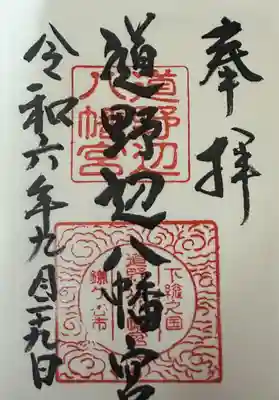 奉拝
道野辺八幡宮
令和六年九月二十九日
道野辺
八幡宮
下総之国
道野辺八幡宮